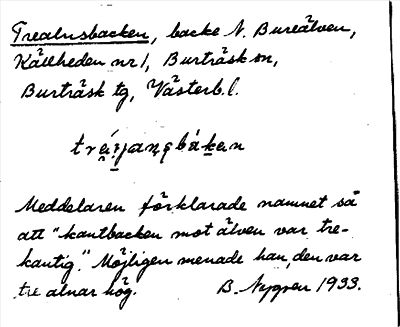 Trealnsbacken, backe N. Bureälven,
Källheden nr 1, Burträsk sn,
Burträsk tg, Västerb. l.
Meddelaren förklarade namnet så
att "kantbacken mot älven var tre-
kantig." Möjligen menade han, den var
tre alnar hög. B. Nygren 1933.